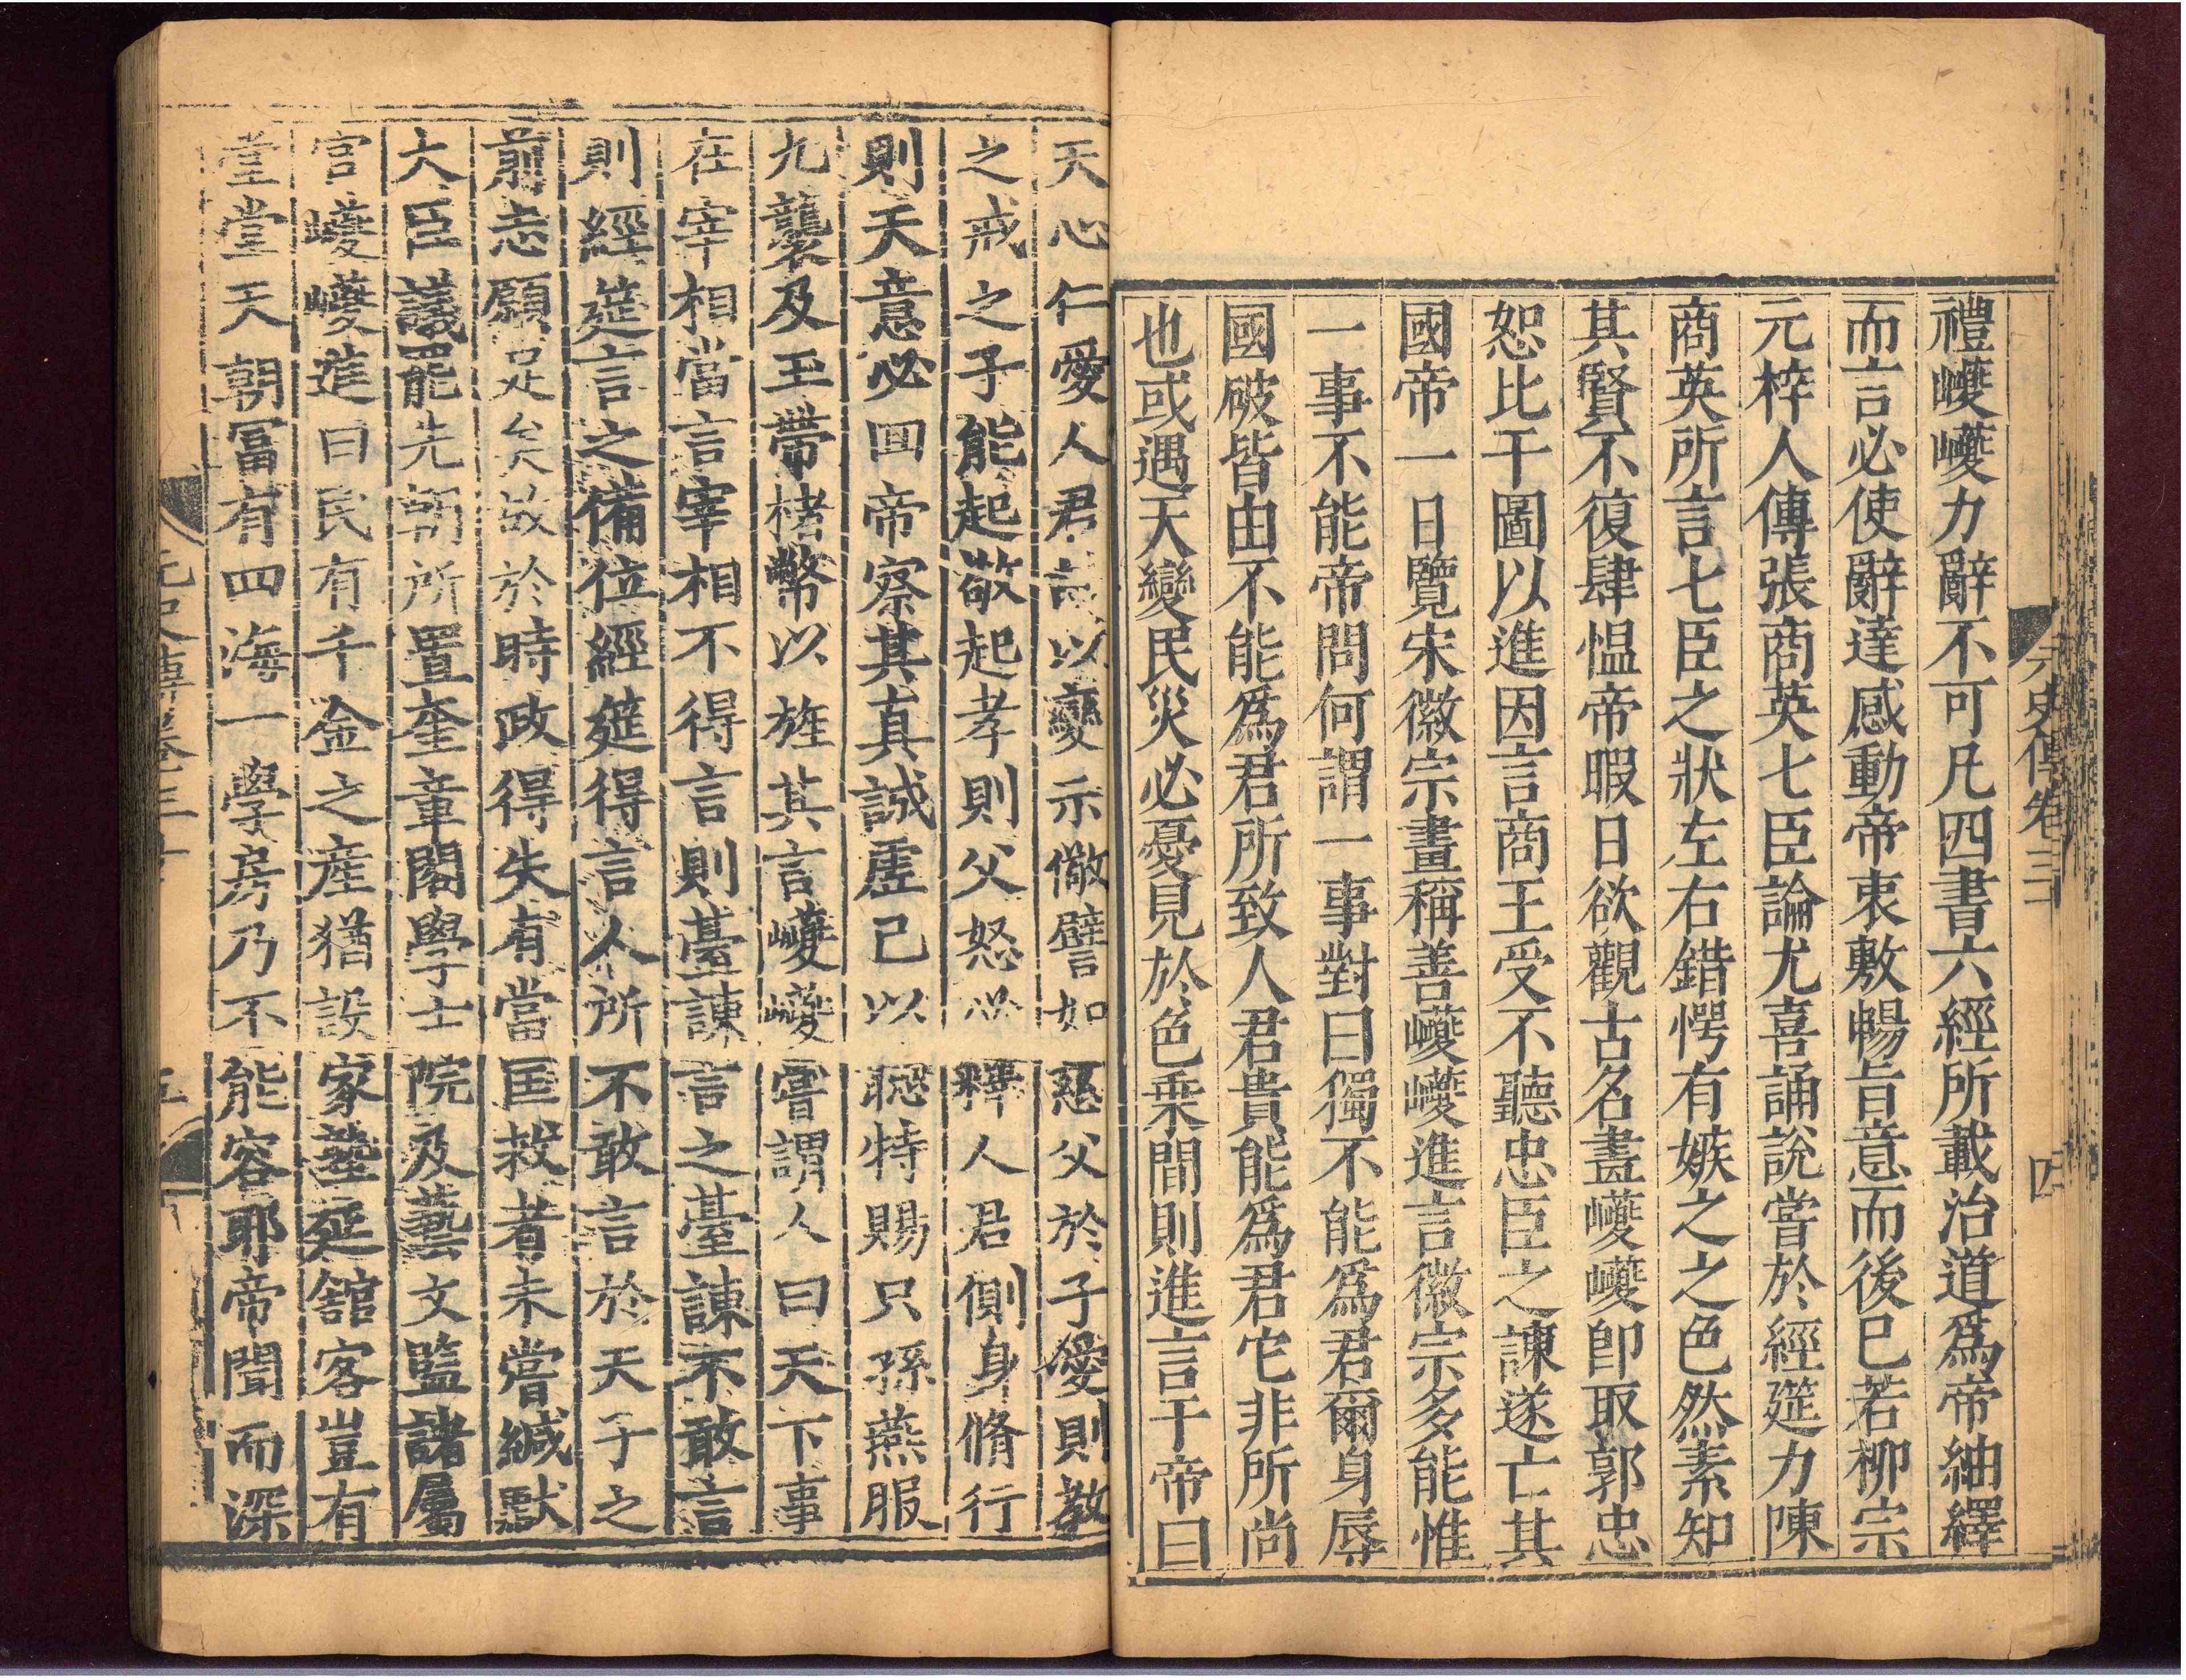 元史傳卷三 四
禮巙巙力辭不可凡四書六經所載治道爲帝紬繹
而言必使辭達感動帝衷敷暢旨意而後已若柳宗
元梓人傳張商英七臣論尤喜誦說嘗於經筵力陳
商英所言七臣之狀左右錯愕有嫉之之色然素知
其賢不復肆慍帝暇日欲觀古名畫巙巙卽取郭忠
恕比干圖以進因言商王受不聽忠臣之諫遂亡其
國帝一日覽宋徽宗畫稱善巙巙進言徽宗多能惟
一事不能帝問何謂一事對曰獨不能爲君爾身辱
國破皆由不能爲君所致人君貴能爲君它非所尚
也或遇天變民災必憂見於色乗間則進言于帝曰
天心仁愛人君故以變示儆譬如慈父於子愛則敎
之戒之子能起敬起孝則父怒必釋人君側身脩行
則天意必回帝察其真誠虛己以聽特賜只孫燕服
九襲及玉帶楮幣以旌其言巙巙嘗謂人曰天下事
在宰相當言宰相不得言則臺諫言之臺諫不敢言
則經筵言之備位經筵得言人所不敢言於天子之
前志願足矣故於時政得失有當匡救者未嘗緘默
大臣議罷先朝所置奎章閣學士院及藝文監諸屬
官巙巙進曰民有千金之産猶設家塾延舘客豈有
堂堂天朝冨有四海一學房乃不能容耶帝聞而深